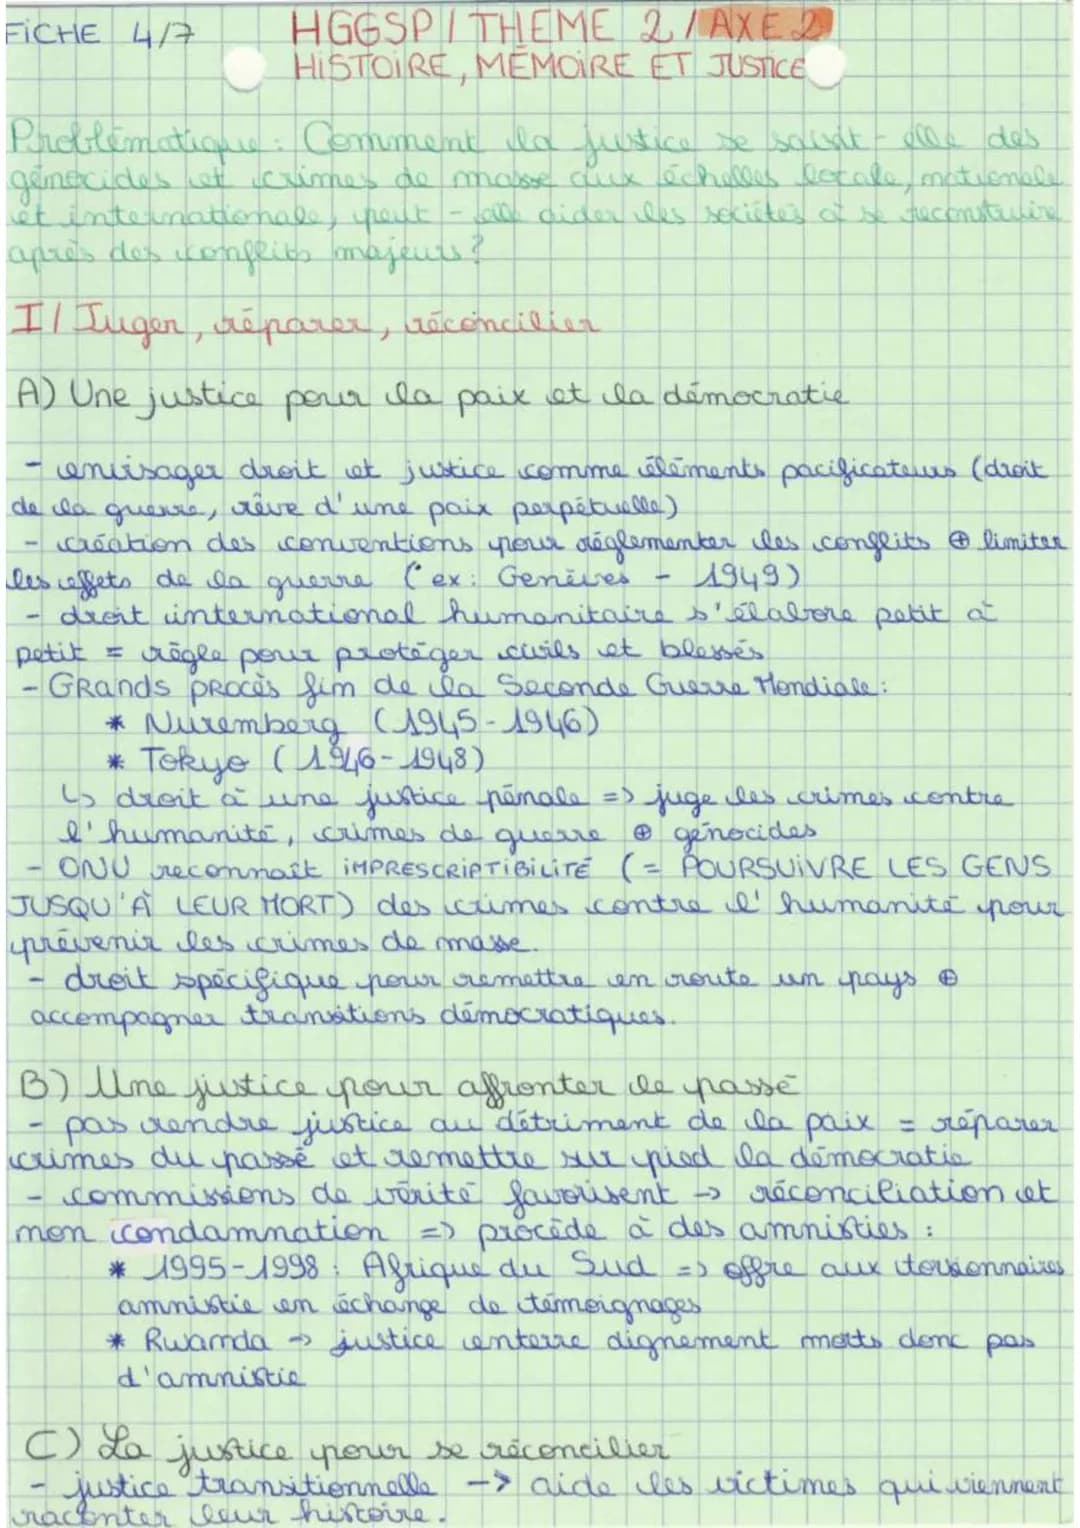 FICHE 4/7
HGGSP / THEME 2 / AXE 2
HISTOIRE, MÉMOIRE ET JUSTICE
Problématique : Comment la justice se saisit-elle des
génocides et crimes de masse aux échelles locale, nationale
et internationale, peut-elle aider les sociétés à se reconstruire
après des conflits majeurs ?
I / Juger, réparer, réconcilier
A) Une justice pour la paix et la démocratie
- envisager droit et justice comme éléments pacificateurs (droit
de la guerre, rêve d'une paix perpétuelle)
- création des conventions pour réglementer les conflits ⊕ limiter
les effets de la guerre (ex : Genèves - 1949)
- droit international humanitaire s'élabore petit à
petit = règle pour protéger civils et blessés
- GRands procès fin de la Seconde Guerre Mondiale :
* Nuremberg (1945-1946)
* Tokyo (1946-1948)
↳ droit à une justice pénale => juge les crimes contre
l'humanité, crimes de guerre ⊕ génocides
- ONU reconnaît IMPRESCRIPTIBILITÉ (= POURSUIVRE LES GENS
JUSQU'À LEUR MORT) des crimes contre l'humanité pour
prévenir les crimes de masse.
- droit spécifique pour remettre en route un pays ⊕
accompagner transitions démocratiques.
B) Une justice pour affronter le passé
- pas rendre justice au détriment de la paix = réparer
crimes du passé et remettre sur pied la démocratie
- commissions de vérité favorisent → réconciliation et
non condamnation => procède à des amnisties :
* 1995-1998 : Afrique du Sud => offre aux tortionnaires
amnistie en échange de témoignages
* Rwanda → justice enterre dignement morts donc pas
d'amnistie
C) La justice pour se réconcilier
- justice transitionnelle -> aide les victimes qui viennent
raconter leur histoire.